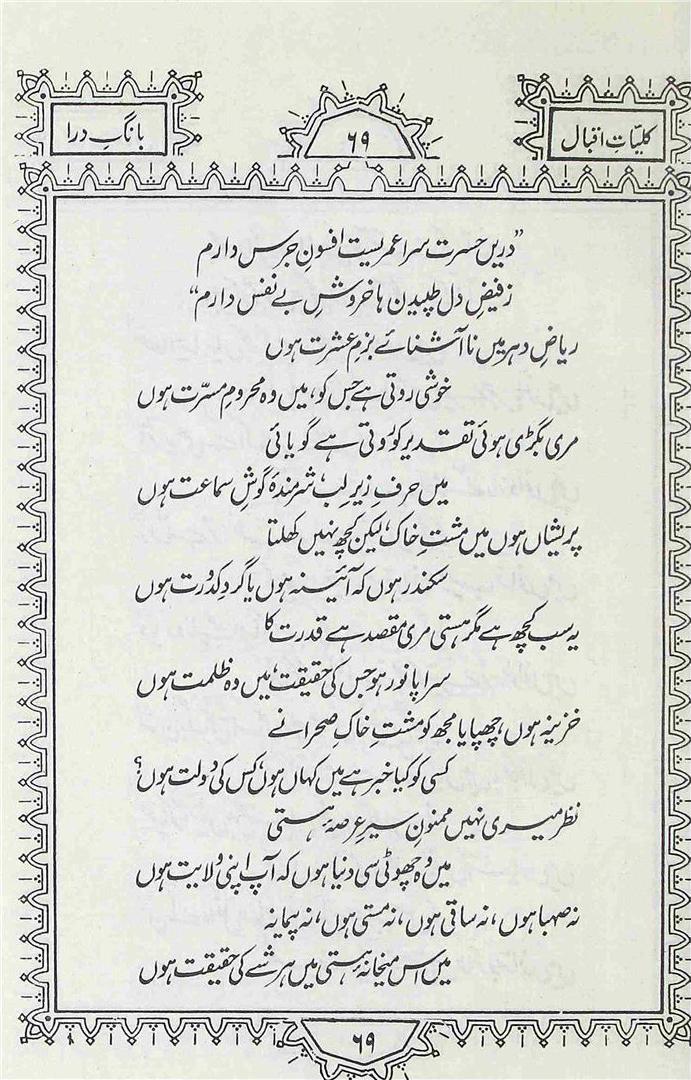 کلیّاتِ اقبال
۶۹
بانگِ درا
”دریں حسرت سرا عمریست افسونِ جرس دارم
ز فیضِ دل طپیدن ہا خروشِ بے نفس دارم“
ریاضِ دہر میں ناآشنائے بزمِ عشرت ہوں
خوشی روتی ہے جس کو، میں وہ محرومِ مسرّت ہوں
مری بگڑی ہوئی تقدیر کو روتی ہے گویائی
میں حرفِ زیرِ لب، شرمندۂ گوشِ سماعت ہوں
پریشاں ہوں میں مشتِ خاک، لیکن کچھ نہیں کھلتا
سکندر ہوں کہ آئینہ ہوں یا گردِ کدُورت ہوں
یہ سب کچھ ہے مگر ہستی مری مقصد ہے قدرت کا
سراپا نور ہو جس کی حقیقت، میں وہ ظلمت ہوں
خزینہ ہوں، چھپایا مجھ کو مشتِ خاکِ صحرا نے
کسی کو کیا خبر ہے میں کہاں ہوں، کس کی دولت ہوں؟
نظر میری نہیں ممنونِ سیرِ عرصۂ ہستی
میں وہ چھوٹی سی دنیا ہوں کہ آپ اپنی ولایت ہوں
نہ صہبا ہوں، نہ ساقی ہوں، نہ مستی ہوں، نہ پیمانہ
میں اس میخانۂ ہستی میں ہر شے کی حقیقت ہوں
۶۹